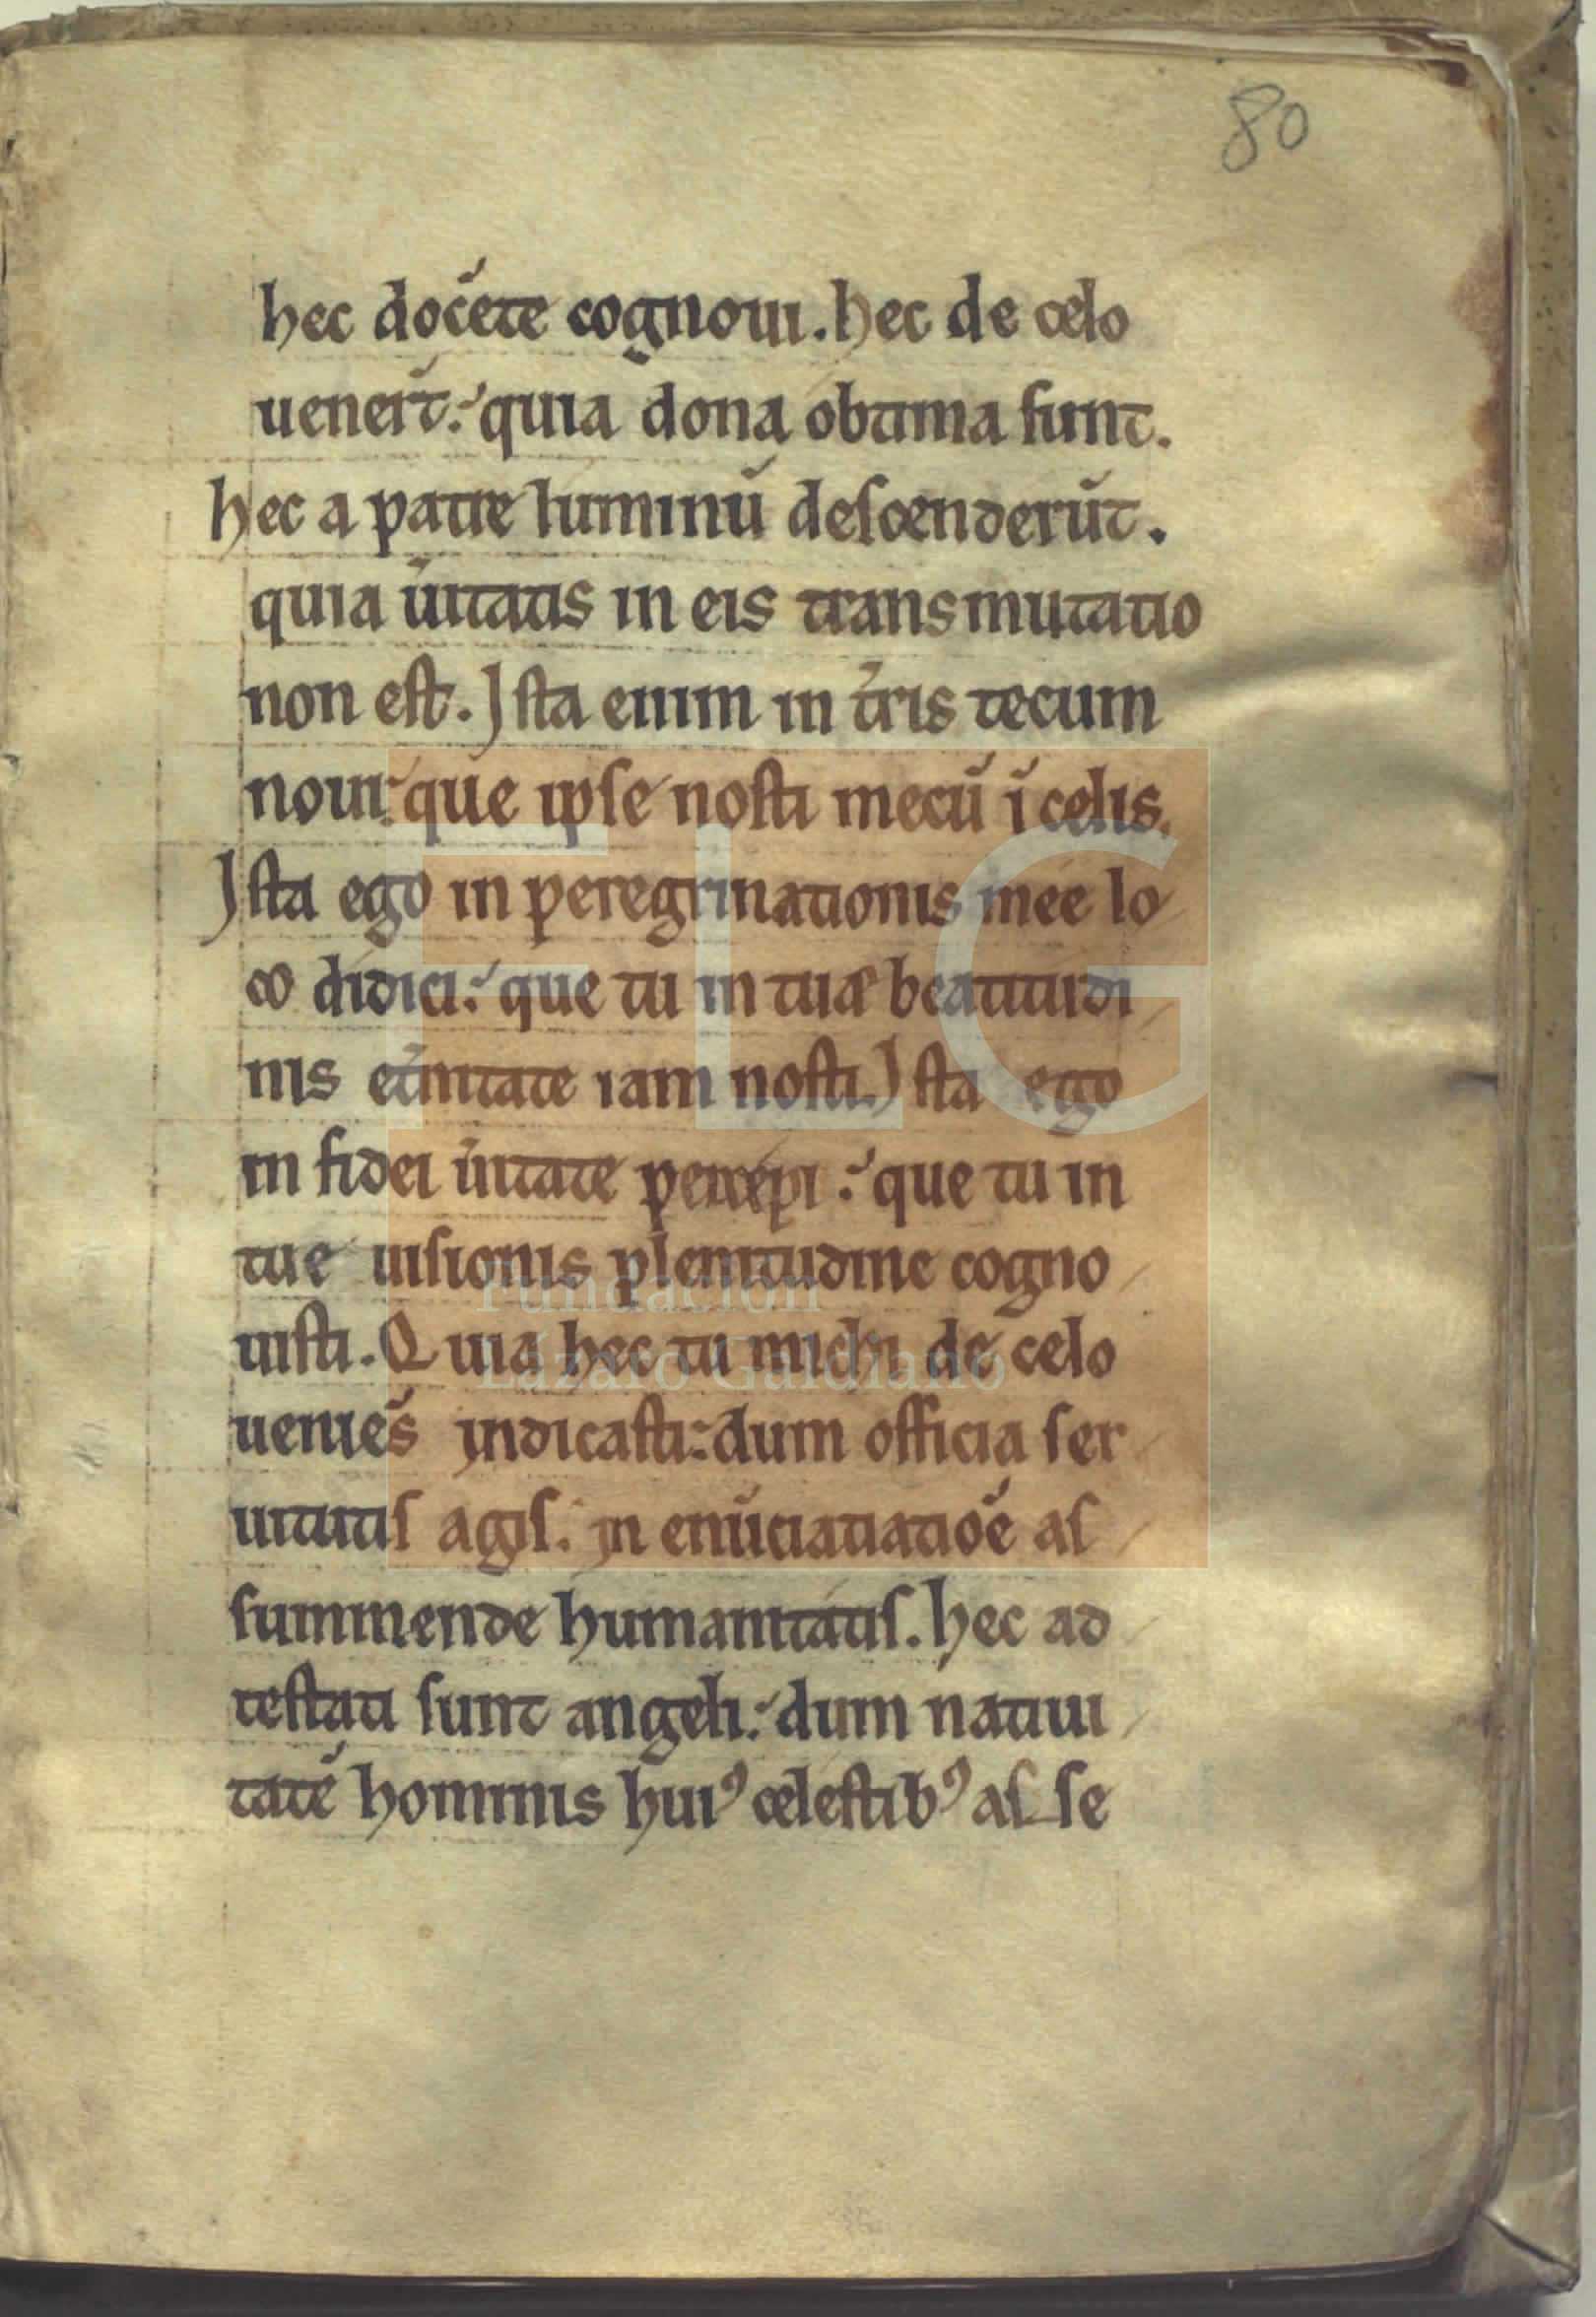 80
hec docẽte cognoui. hec de celo
uenert̄. quia dona obtima sunt.
hec a patre luminū descenderūt.
quia ũitatis in eis transmutatio
non est. Ista enim in t̃ris tecum
noui. que ipse nosti mecū ī celis.
Ista ego in peregrinationis mee lo
co didici. que tu in tuæ beatitudi
nis et̃nitate iam nosti. Ista ego
in fidei ũitate percepi. que tu in
tue uisionis plenitudine cogno
uisti. Quia hec tu michi de celo
ueniēs indicasti. dum officia ser
uitutis agis. in enūciatiatiōe as
summende humanitatis. hec ad
testati sunt angeli. dum natiui
tatē hominis huiꝰ celestibꝰ as se
FLG
Fundación
Lázaro Galdiano